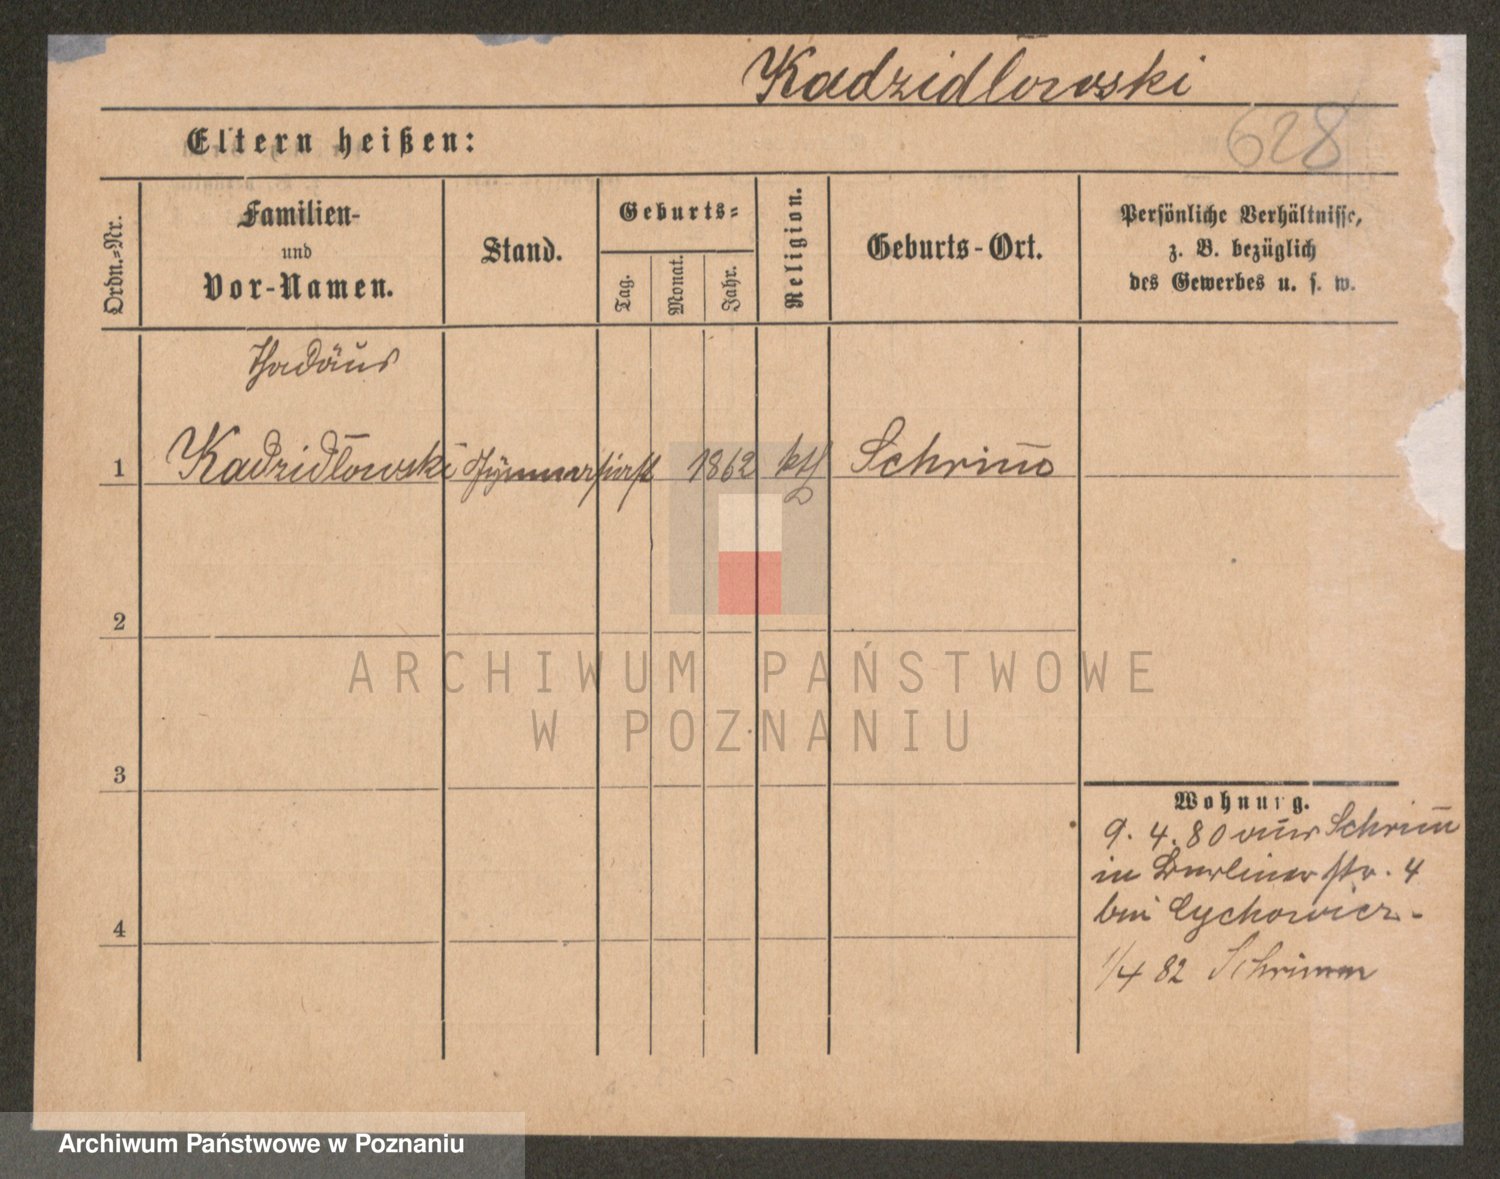 Kadzidłowski
628
Eltern heißen:
Ordn.-Nr.
Familien-
und
Vor-Namen.
Stand.
Geburts-
Tag.
Monat.
Jahr.
Religion.
Geburts-Ort.
Persönliche Verhältnisse,
z. B. bezüglich
des Gewerbes u. s. w.
Thadäus
1 Kadzidłowski Gymnasiast 1862 kth Schrim̅
2
3
4
Wohnung.
9. 4. 80 aus Schrim̅
in Berliner str. 4
bei Cychowicz.
1/4 82 Schrimm
ARCHIWUM PAŃSTWOWE
W POZNANIU
Archiwum Państwowe w Poznaniu